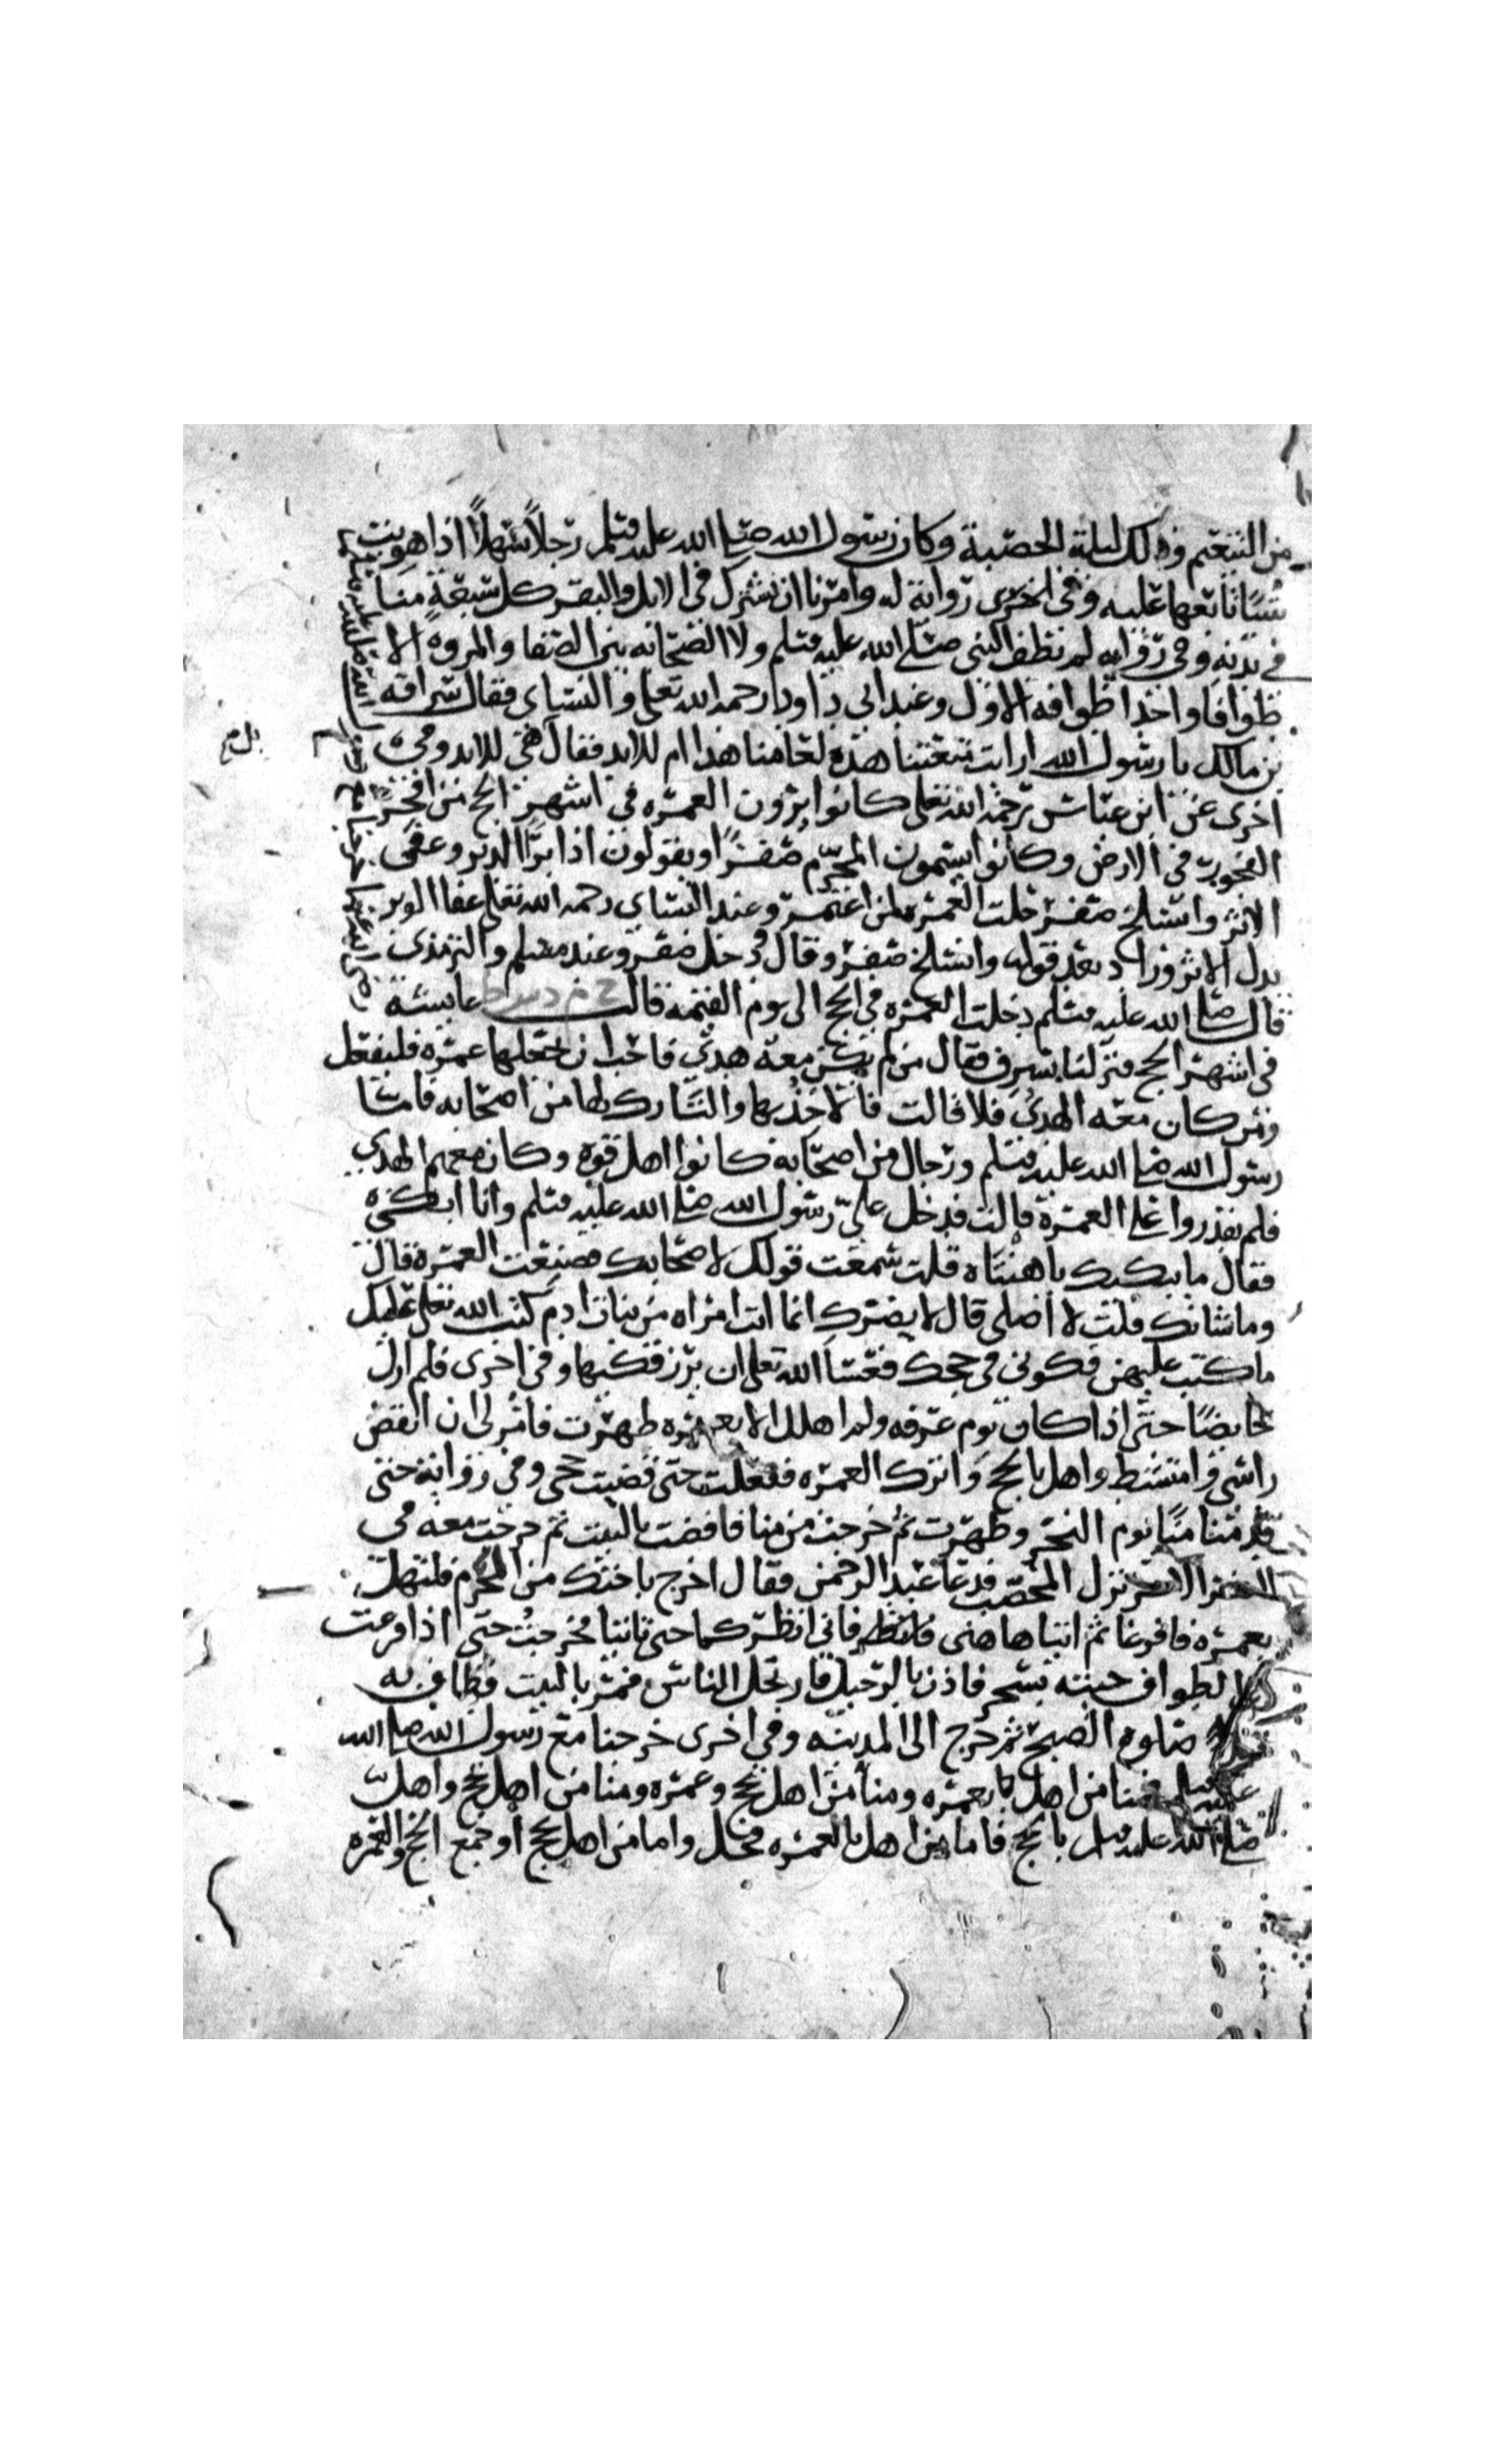 من التنعيم وذلك ليلة الحصبة وكان رسول الله صلى الله عليه وسلم رجلاً سهلاً اذا هويت
شياً تابعها عليه وفي اخرى رواية له وامرنا ان نشترك في الابل والبقر كل سبعة منا
في بدنه وفي رواية لم يطف النبي صلى الله عليه وسلم ولا اصحابه بين الصفا والمروه الا
طوافا واحدا طوافه الاول وعند ابي داود رحمه الله تعلى والنسياى فقال سراقه
بن مالك يا رسول الله ارايت متعتنا هذه لعامنا هذا ام للابد فقال هى للابد وفى
اخرى عن ابن عباس رحمه الله تعلى كانوا يرون العمره فى اشهر الحج من افجر
الفجور فى الارض وكانوا يسمون المحرم صفرًا ويقولون اذا برا الدبر وعفى
الاثر وانسلخ صفر حلت العمره لمن اعتمر وعند النساى رحمه الله تعلى عفا الوبر
بدل الاثر وزاد بعد قوله وانسلخ صفر وقال دخل صفر وعند مسلم والترمذى
قال صلى الله عليه وسلم دخلت العمره فى الحج الى يوم القيمه قالت عايشه
فى اشهر الحج فنزلنا بسرف فقال من لم يكن معه هدى فاحب ان يجعلها عمره فليفعل
ومن كان معه الهدى فلا قالت فالاخذ بها والتارك لها من اصحابه فاما
رسول الله صلى الله عليه وسلم ورجال من اصحابه كانوا اهل قوه وكان معهم الهدى
فلم يقدروا على العمره قالت فدخل علىّ رسول الله صلى الله عليه وسلم وانا ابكى
فقال ما يبكيك يا هنتاه قلت سمعت قولك لاصحابك فمنعت العمره قال
وما شانك قلت لا اصلى قال لا يضرك انما انت امراه من بنات ادم كتب الله تعلى عليك
ما كتب عليهن فكونى فى حجك فعسا الله تعلى ان يرزقكيها وفى اخرى فلم ازل
حايضًا حتى اذا كان يوم عرفه ولم اهلل الا بعمره طهرت فامرنى ان انقض
راسى وامتشط واهل بالحج واترك العمره ففعلت حتى قضيت حجى وفى رواية حتى
قدمنا منًا يوم النحر وطهرت ثم خرجت من منا فافضت بالبيت ثم خرجت معه فى
النفر الاخر نزل المحصب فدعا عبد الرحمن فقال اخرج باختك من الحرم فلتهل
بعمره فافرغا ثم ائتيا هاهنى فانى انظركما حتى تاتيا فخرجت حتى اذا فرغت
الطواف جيته بسحر فاذن بالرحيل فارتحل الناس فمر بالبيت فطاف به
قبل صلوة الصبح ثم خرج الى المدينه وفى اخرى خرجنا مع رسول الله صلى الله
عليه وسلم فمنا من اهل بعمره ومنا من اهل بحج وعمره ومنا من اهل بحج واهل
صلى الله عليه وسلم بالحج فاما من اهل بالعمره فحل واما من اهل بحج او جمع الحج والعمره